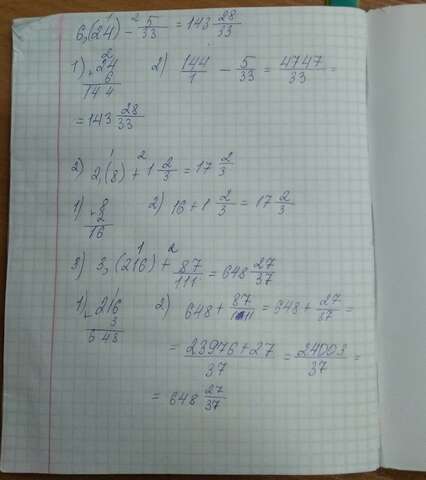 6,(24) - 5/33 = 143 28/33
1) 24 2) 144/1 - 5/33 = 4747/33 =
6
144
= 143 28/33
2) 2,(8) + 1 2/3 = 17 2/3
1) 8 2) 16 + 1 2/3 = 17 2/3
2
16
3) 3,(216) + 87/111 = 648 27/37
1) 216 2) 648 + 87/111 = 648 + 27/37 =
3
648
= 23976+27/37 = 24003/37 =
= 648 27/37